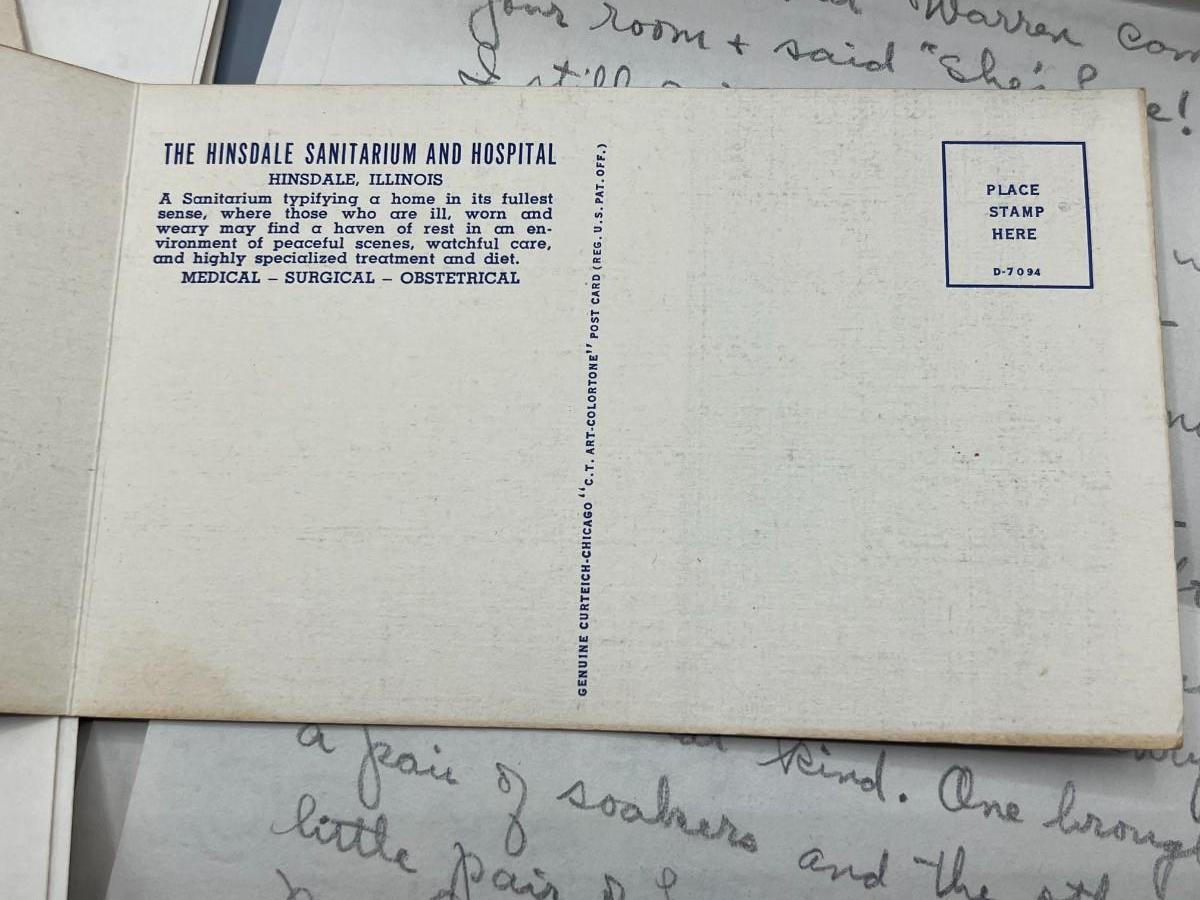 Warren com
your room + said "She's
I still
e!
THE HINSDALE SANITARIUM AND HOSPITAL
HINSDALE, ILLINOIS
A Sanitarium typifying a home in its fullest
sense, where those who are ill, worn and
weary may find a haven of rest in an en-
vironment of peaceful scenes, watchful care,
and highly specialized treatment and diet.
MEDICAL – SURGICAL – OBSTETRICAL
GENUINE CURTEICH-CHICAGO "C.T. ART-COLORTONE" POST CARD (REG. U.S. PAT. OFF.)
PLACE
STAMP
HERE
D-7094
kind. One brough
a pair of soakers and the oth
little pair of